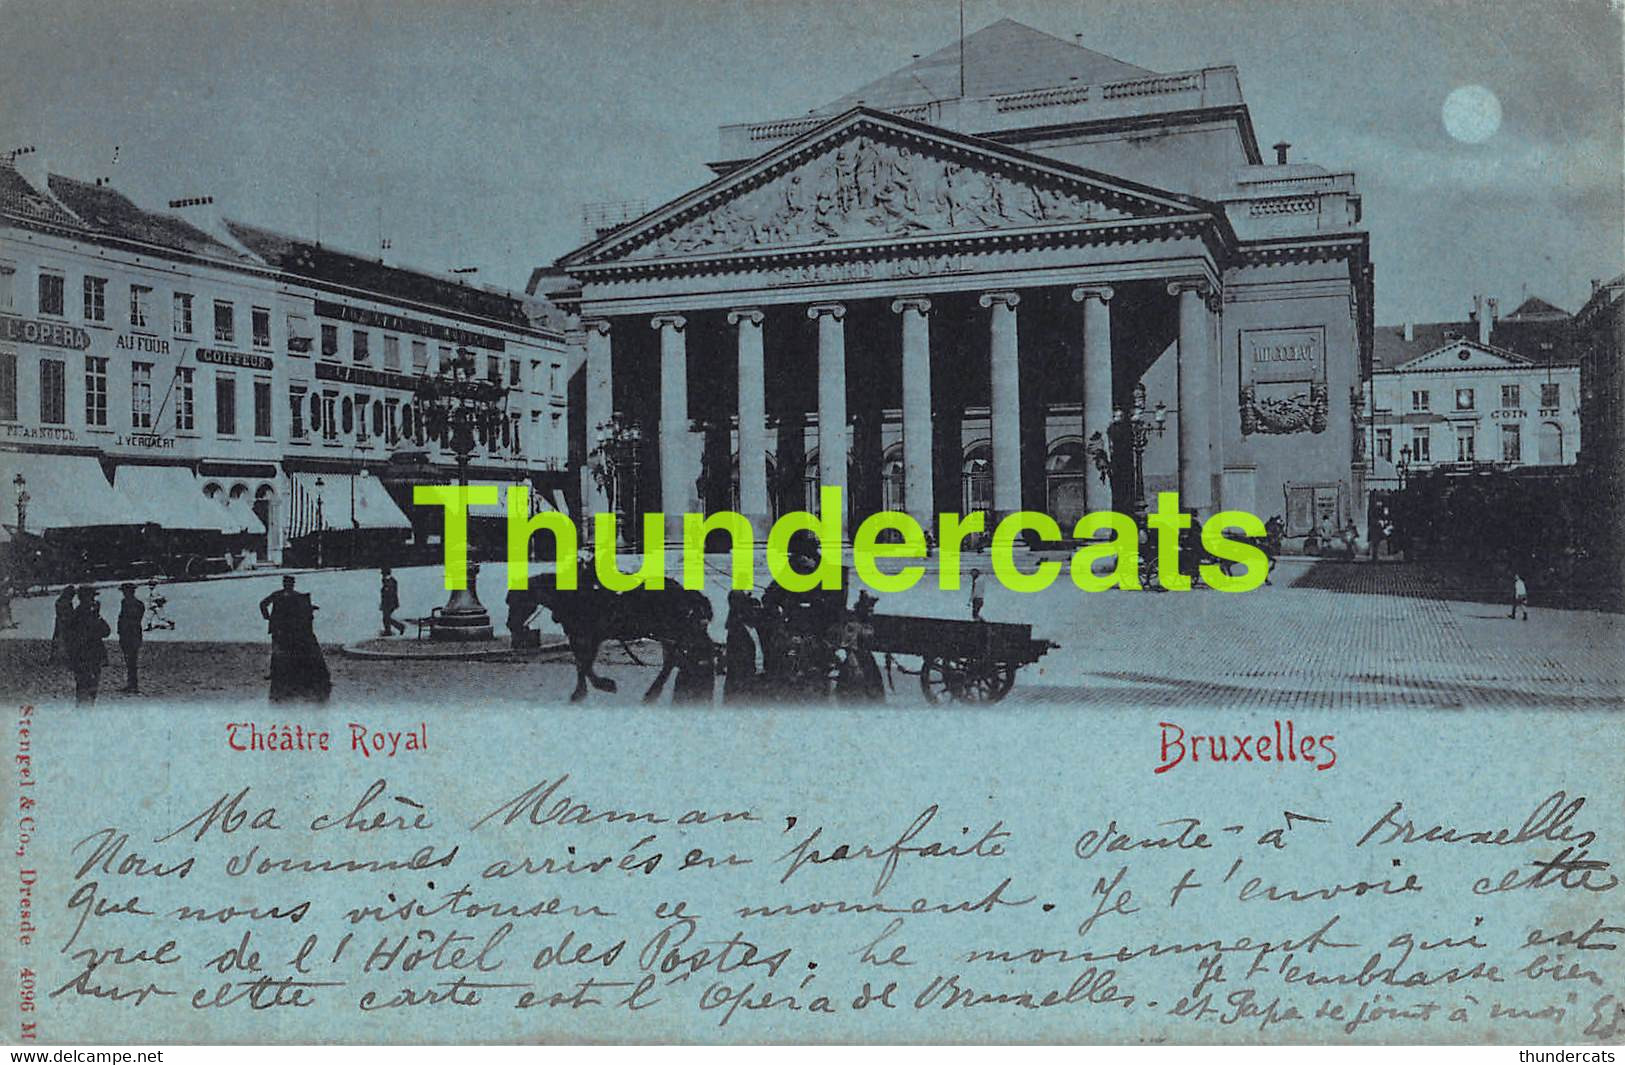 THEATRE ROYAL
L'OPERA
AU FOUR
COIFFEUR
J. VERGAERT
COIN DE
Thundercats
Théâtre Royal
Bruxelles
Stengel & Co., Dresde 4096 M
Ma chère Maman,
Nous sommes arrivés en parfaite santé à Bruxelles
que nous visitons en ce moment. Je t'envoie cette
vue de l'Hôtel des Postes. Le monument qui est
sur cette carte est l'Opéra de Bruxelles. Je t'embrasse bien
et Papa se joint à moi
thundercats